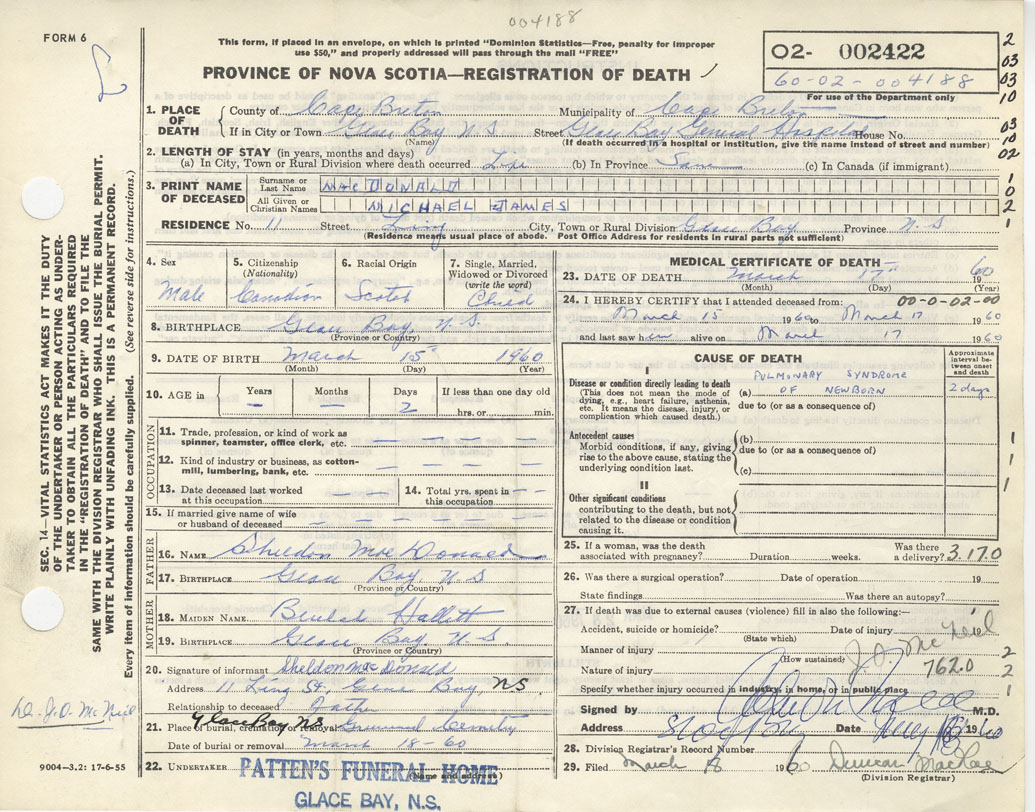 004188
FORM 6
This form, if placed in an envelope, on which is printed "Dominion Statistics—Free, penalty for improper
use $50," and properly addressed will pass through the mail "FREE"
PROVINCE OF NOVA SCOTIA—REGISTRATION OF DEATH
02- 002422
60-02-004188
For use of the Department only
2
03
03
10
03
10
02
1
0
2
1
SEC. 14—VITAL STATISTICS ACT MAKES IT THE DUTY
OF THE UNDERTAKER OR PERSON ACTING AS UNDER-
TAKER TO OBTAIN ALL THE PARTICULARS REQUIRED
IN THE "REGISTRATION OF DEATH" AND TO FILE THE
SAME WITH THE DIVISION REGISTRAR WHO SHALL ISSUE THE BURIAL PERMIT.
WRITE PLAINLY WITH UNFADING INK. THIS IS A PERMANENT RECORD.
Every item of information should be carefully supplied. (See reverse side for instructions.)
1. PLACE OF DEATH
County of Cape Breton Municipality of Cape Breton
If in City or Town Glace Bay N.S. Street Glace Bay General Hospital House No.
(Name) (If death occurred in a hospital or institution, give the name instead of street and number)
2. LENGTH OF STAY (in years, months and days)
(a) In City, Town or Rural Division where death occurred Life (b) In Province Same (c) In Canada (if immigrant).
3. PRINT NAME OF DECEASED
Surname or Last Name MacDONALD
All Given or Christian Names MICHAEL JAMES
RESIDENCE No. 11 Street Ling City, Town or Rural Division Glace Bay Province N.S
(Residence means usual place of abode. Post Office Address for residents in rural parts not sufficient)
4. Sex
Male
5. Citizenship
(Nationality)
Canadian
6. Racial Origin
Scotch
7. Single, Married,
Widowed or Divorced
(write the word)
Child
8. BIRTHPLACE Glace Bay, N.S.
(Province or Country)
9. DATE OF BIRTH March 15th 1960
(Month) (Day) (Year)
10. AGE in
Years Months Days If less than one day old
— — 2 hrs. or min.
OCCUPATION
11. Trade, profession, or kind of work as
spinner, teamster, office clerk, etc.
12. Kind of industry or business, as cotton-
mill, lumbering, bank, etc.
13. Date deceased last worked
at this occupation
14. Total yrs. spent in
this occupation
15. If married give name of wife
or husband of deceased
FATHER
16. NAME Sheldon MacDonald
17. BIRTHPLACE Glace Bay, N.S
(Province or Country)
MOTHER
18. MAIDEN NAME Beulah Hallett
19. BIRTHPLACE Glace Bay N.S
(Province or Country)
20. Signature of informant Sheldon MacDonald
Address 11 Ling St, Glace Bay NS
Relationship to deceased Father
Dr. J.O. McNeil
21. Place of burial, cremation or removal Glace Bay NS Cemetery
Date of burial or removal March 18-60
22. UNDERTAKER PATTEN'S FUNERAL HOME
(Name and address)
GLACE BAY, N.S.
9004-3.2: 17-6-55
MEDICAL CERTIFICATE OF DEATH
23. DATE OF DEATH March 17th 60
(Month) (Day) (Year)
24. I HEREBY CERTIFY that I attended deceased from: 00-0-02-00
March 15 1960 to March 17 1960
and last saw him alive on March 17 1960
CAUSE OF DEATH
Approximate
interval between
onset
and death
I
Disease or condition directly leading to death
(This does not mean the mode of
dying, e.g., heart failure, asthenia,
etc. It means the disease, injury, or
complication which caused death.)
(a) PULMONARY SYNDROME
OF NEWBORN
2 days
due to (or as a consequence of)
Antecedent causes
Morbid conditions, if any, giving
rise to the above cause, stating the
underlying condition last.
(b)
due to (or as a consequence of)
(c)
1
1
1
II
Other significant conditions
contributing to the death, but not
related to the disease or condition
causing it.
25. If a woman, was the death
associated with pregnancy? Duration weeks. Was there
a delivery? 3.17.0
26. Was there a surgical operation? Date of operation 19
State findings Was there an autopsy?
27. If death was due to external causes (violence) fill in also the following:—
Accident, suicide or homicide? Date of injury
(State which)
Manner of injury
(How sustained)
J.O. McNeil
Nature of injury 762.0
Specify whether injury occurred in industry, in home, or in public place
1
2
2
1
Signed by M.D.
Address Date 1960
28. Division Registrar's Record Number
29. Filed March 18 1960 Duncan MacRae
(Division Registrar)